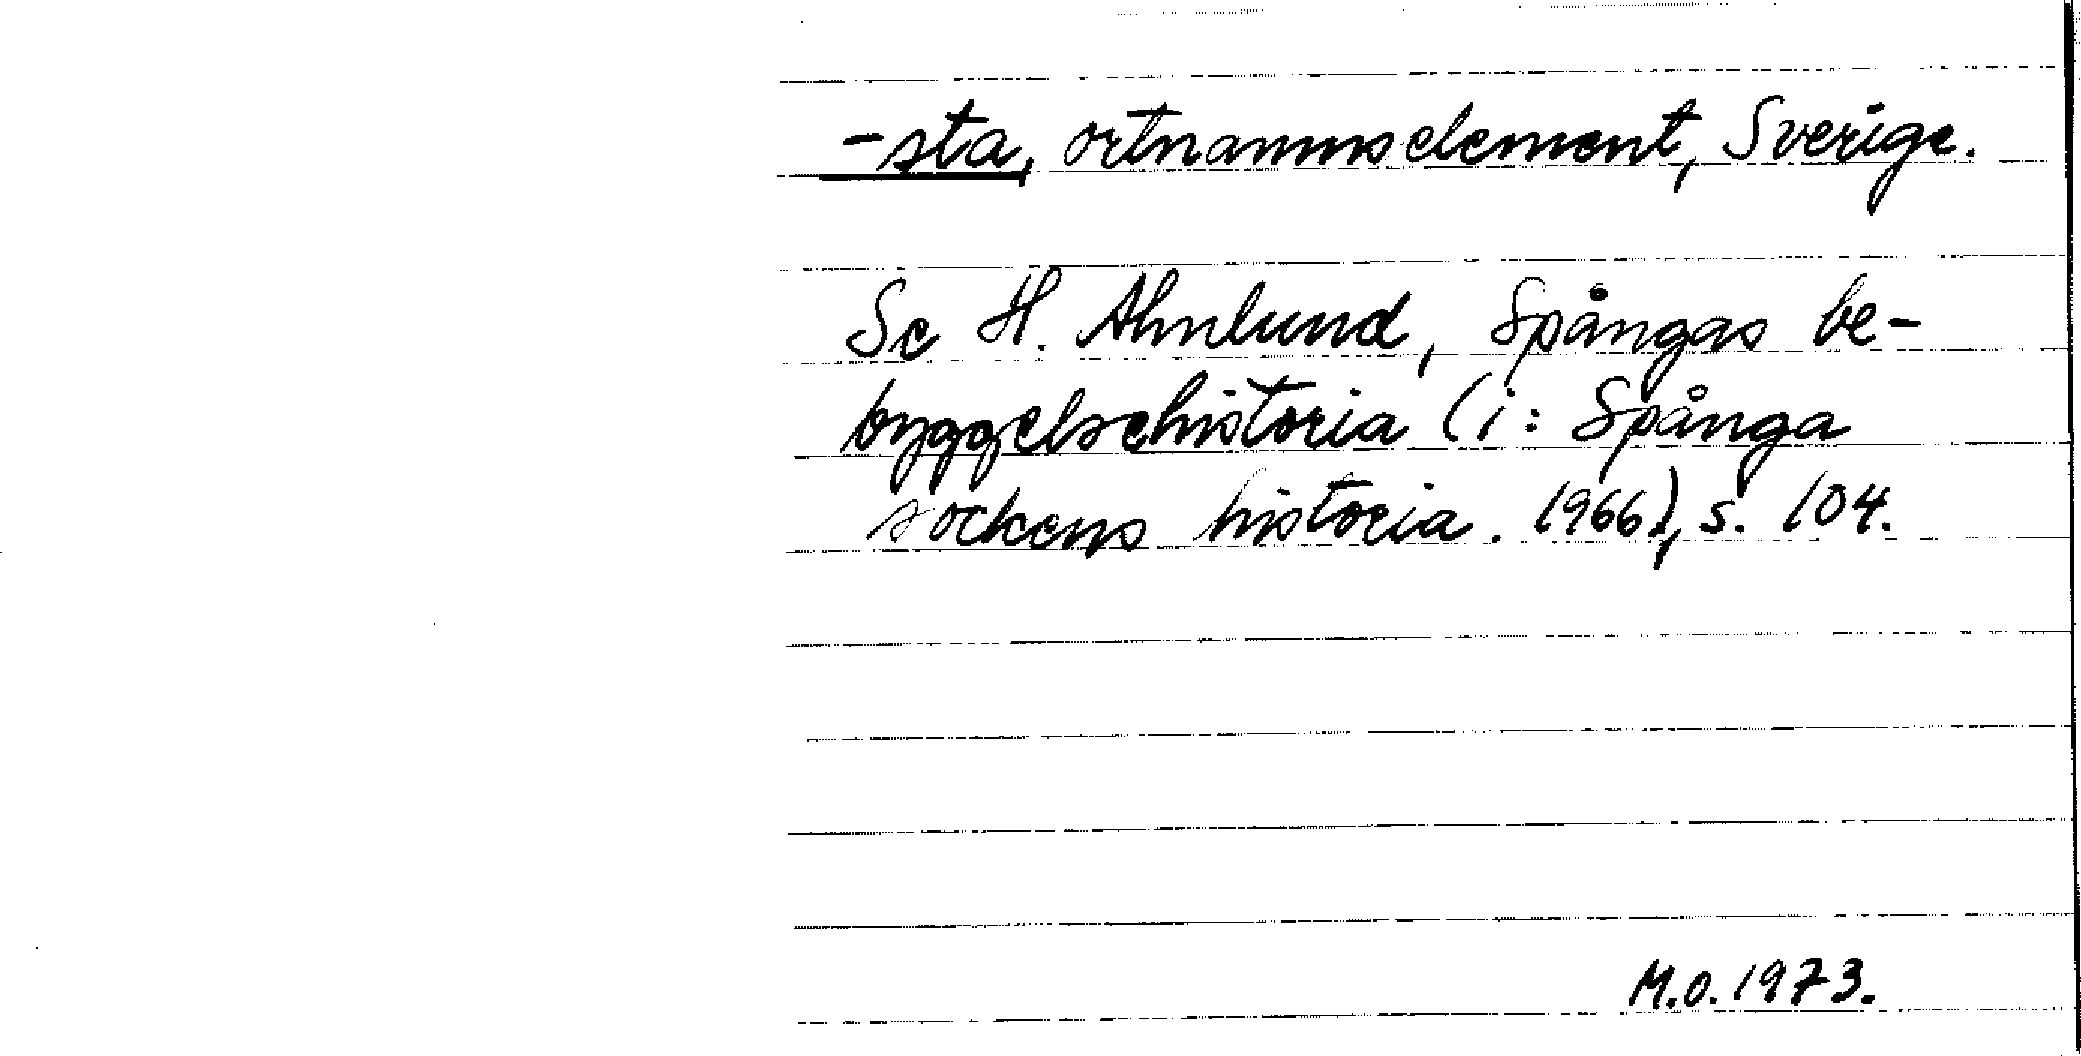 -sta, ortnamnselement, Sverige.
Se H. Ahnlund, Spångas be-
byggelsehistoria (i: Spånga
sockens historia. 1966), s. 104.
M.O. 1973.